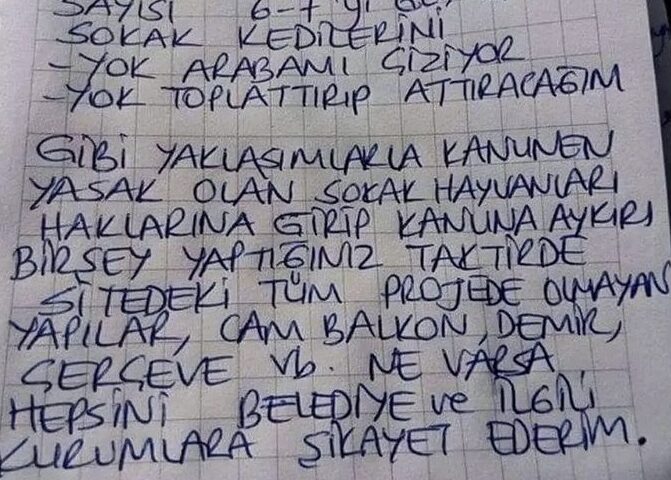 SAYISI 6-7 yi
SOKAK KEDİLERİNİ
-YOK ARABAMI ÇİZİYOR
-YOK TOPLATTIRIP ATTIRACAĞIM
GİBİ YAKLAŞIMLARLA KANUNEN
YASAK OLAN SOKAK HAYVANLARI
HAKLARINA GİRİP KANUNA AYKIRI
BİRŞEY YAPTIĞINIZ TAKTİRDE
SİTEDEKİ TÜM PROJEDE OLMAYAN
YAPILAR, CAM BALKON, DEMİR,
ÇERÇEVE vb. NE VARSA
HEPSİNİ BELEDİYE ve İLGİLİ
KURUMLARA ŞİKAYET EDERİM.